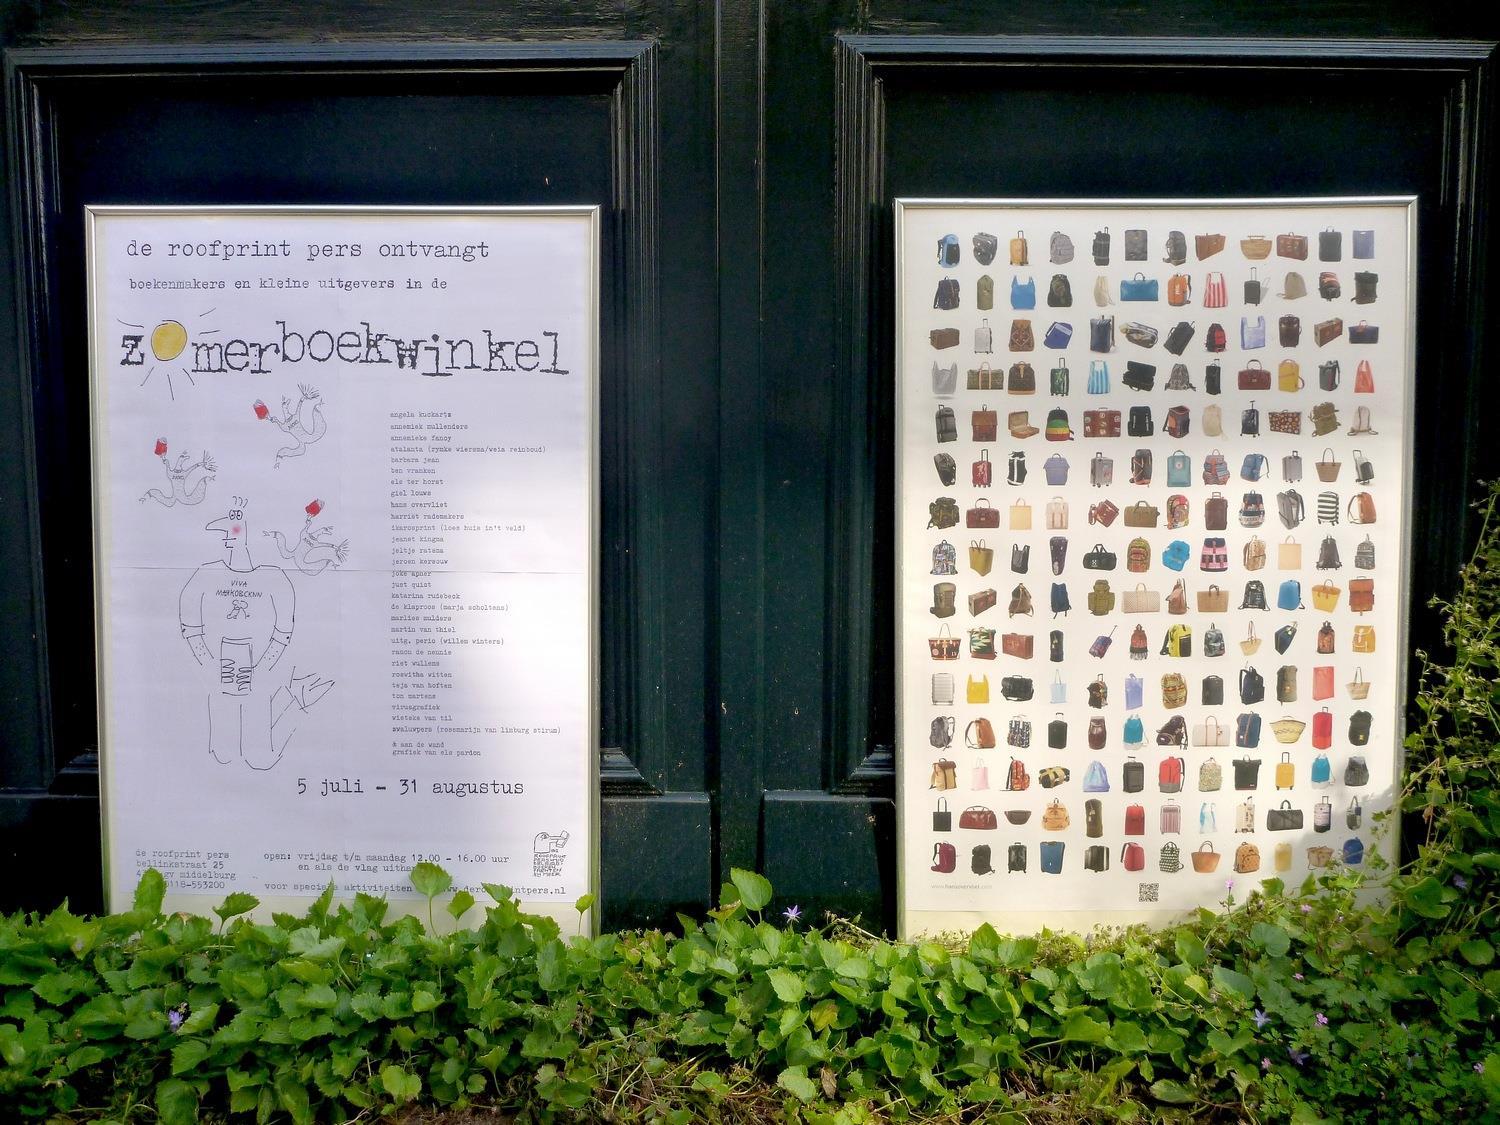 de roofprint pers ontvangt
boekenmakers en kleine uitgevers in de
zomerboekwinkel
angela kuckartz
annemiek mullenders
annemieke fanoy
atalanta (rymke wiersma/weia reinboud)
barbara jean
ben vranken
els ter horst
giel louws
hans overvliet
harriet rademakers
ikarosprint (loes huis in't veld)
jeanet kingma
jeltje ratsma
jeroen kersouw
joke apner
just quist
katarina rudebeck
de klaproos (marja scholtens)
marlies mulders
martin van thiel
uitg. perio (willem winters)
ranon de nennie
riet wullems
roswitha witten
teja van hoften
ton martens
virusgrafiek
wieteke van til
zwaluwpers (rosemarijn van limburg stirum)
& aan de wand
grafiek van els pardon
VIVA
5 juli - 31 augustus
de roofprint pers
bellinkstraat 25
gv middelburg
0118-553200
open: vrijdag t/m maandag 12.00 - 16.00 uur
en als de vlag
voor aktiviteiten